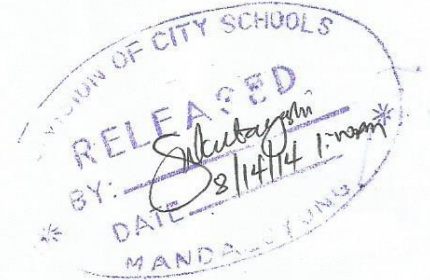 DIVISION OF CITY SCHOOLS
RELEASED
BY:
DATE: 8/14/14
MANDALUYONG